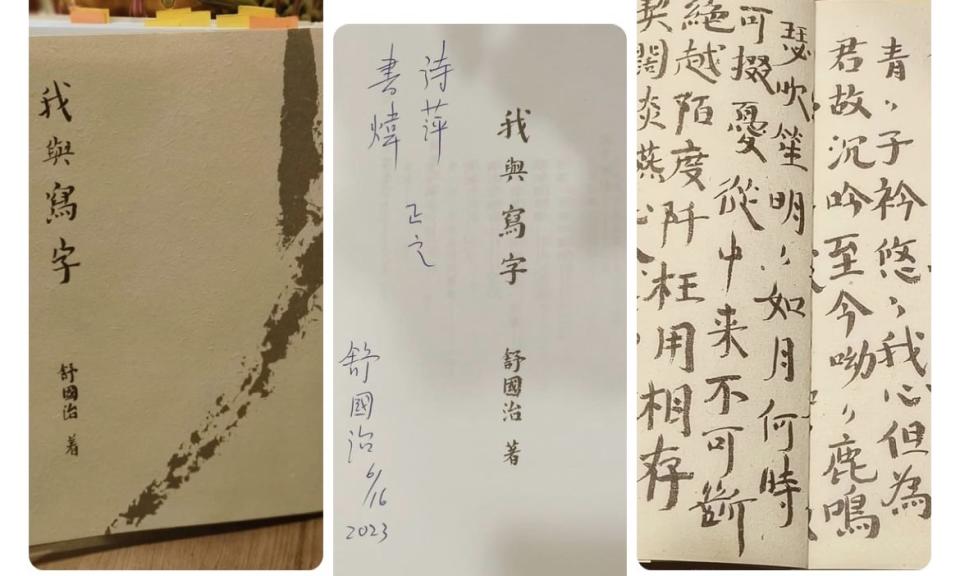 我與寫字
舒國治 著
诗萍
書煒
正之
舒國治
6/16
2023
我與寫字
舒國治 著
青〻子衿悠〻我心但為
君故沉吟至今呦〻鹿鳴
瑟吹笙明〻如月何時
可掇憂從中来不可斷
絕越陌度阡枉用相存
契闊談燕